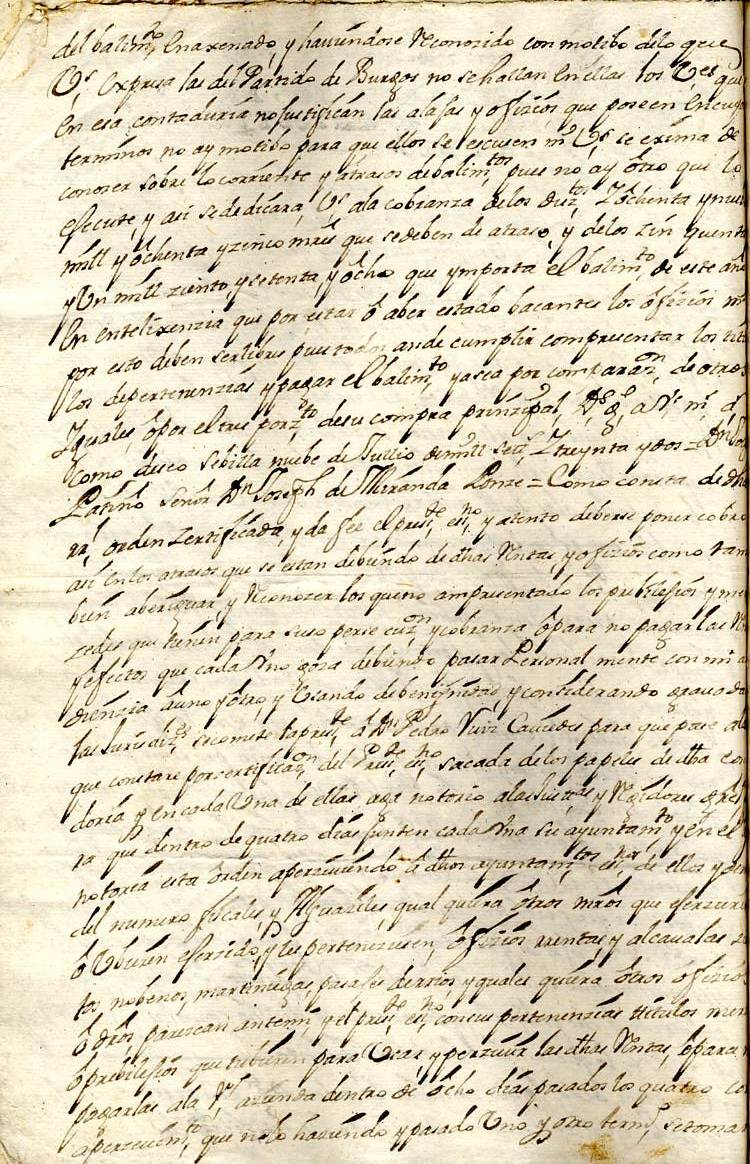 del balim.to enaxenado, y haviendose Reconozido con motibo de lo que
V.s expresa las del Partido de Burgos no se hallan en ellas los V.es que
en esa contaduria no justifican las alajas y ofizios que poseen en cuyo
terminos no ay motibo para que ellos se escusen ni V.s se exima de
conozer sobre lo corriente y atrasos de balim.tos pues no ay otro que lo
efecute, y asi se dedicara V.s a la cobranza de los duz.tos y ochenta y nueb
mill y ochenta y zinco mrs que se deben de atraso, y de los zin quenta
y Un mill ziento y setenta y ocho que ymporta el balim.to de este año
en entelixenzia que por estar o aber estado bacantes los ofizios no
por esto deben ser libres pues todos an de cumplir con presentar los titu
los de pertenenzias y pagar el balim.to ya sea por comparaz.on de otros
Yguales, o por el tres por z.to de su compra prinzipal, D.s g.e a V.s m.s a.s
como deseo Sebilla nuebe de Jullio de mill set.s y treynta y dos = D.n Jo
Patiño Señor D.n Joseph de Miranda Ponze = Como consta de dha
r.l orden zertificada, y da fee el pres.te es.no y atento deberse poner cobro
asi en los atrasos que se estan debiendo de dhas Rentas, y ofizios como tam
bien aberiguar y Reconozer los que no an presentado los pribilejios y mer
zedes que tienen para su so perse cuz.on y cobranza o para no pagar las Re
y efectos que cada Uno goza debiendo pasar Personal mente con mi au
dienzia a uno y otro, y Usando de benignidad, y considerando
las Jurisdiz.s se comete la pres.te a D.n Pedro Ruiz Cavi para que pase a la
que constare por certificaz.on del Pres.te es.no sacada de los papeles de dha con
doria y en cada Una de ellas, aga notorio a las Justas y Regidores
ra que dentro de quatro dias junten cada Una su ayuntam.to y en el
notoria esta orden aperziviendo a dhos ayuntam.tos es.nos de ellos y dem
del numero fiscales, y Alguaziles, qual quiera otros mros que eferzieren
o Ubieren eferzido, y les pertenezieren, ofizios rrentas, y alcavalas
tos nobenos, martiniegas, pasajes de rrios, y quales quiera otros ofizios
o dros, parezcan ante mi, y el pres.te es.no con sus pertenenzias titulos mer
o pribilejios que tubieren para Usar, y perzivir las dhas Rentas, o para
pagarlas a la R.l azienda dentro de ocho dias pasados los quatro con
aperzevim.to que no lo haviendo y pasado Uno y otro term.o se tomar